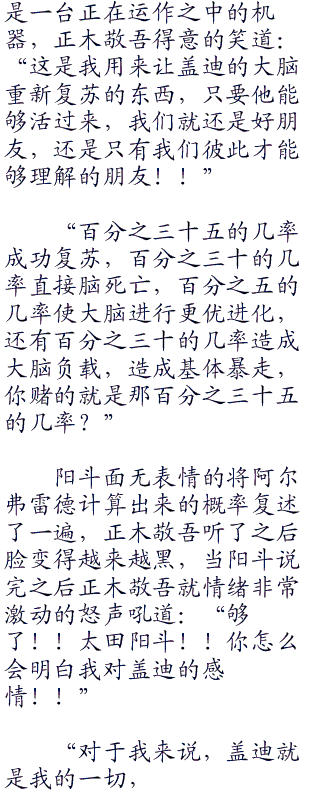 是一台正在运作之中的机
器，正木敬吾得意的笑道：
“这是我用来让盖迪的大脑
重新复苏的东西，只要他能
够活过来，我们就还是好朋
友，还是只有我们彼此才能
够理解的朋友！！”
“百分之三十五的几率
成功复苏，百分之三十的几
率直接脑死亡，百分之五的
几率使大脑进行更优进化，
还有百分之三十的几率造成
大脑负载，造成基体暴走，
你赌的就是那百分之三十五
的几率？”
阳斗面无表情的将阿尔
弗雷德计算出来的概率复述
了一遍，正木敬吾听了之后
脸变得越来越黑，当阳斗说
完之后正木敬吾就情绪非常
激动的怒声吼道：“够
了！！太田阳斗！！你怎么
会明白我对盖迪的感
情！！”
“对于我来说，盖迪就
是我的一切，